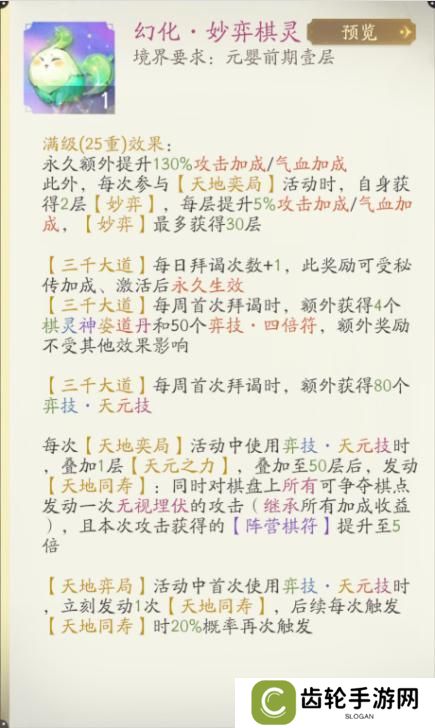 幻化·妙弈棋灵
预览
境界要求：元婴前期壹层
1
满级(25重)效果：
永久额外提升130%攻击加成/气血加成
此外，每次参与【天地奕局】活动时，自身获
得2层【妙弈】，每层提升5%攻击加成/气血加
成，【妙弈】最多获得30层
【三千大道】每日拜谒次数+1，此奖励可受秘
传加成、激活后永久生效
【三千大道】每周首次拜谒时，额外获得4个
棋灵神姿道丹和50个弈技·四倍符，额外奖励
不受其他效果影响
【三千大道】每周首次拜谒时，额外获得80个
弈技·天元技
每次【天地奕局】活动中使用弈技·天元技时
，叠加1层【天元之力】，叠加至50层后，发动
【天地同寿】：同时对棋盘上所有可争夺棋点
发动一次无视埋伏的攻击（继承所有加成收益
），且本次攻击获得的【阵营棋符】提升至5
倍
【天地弈局】活动中首次使用弈技·天元技时
，立刻发动1次【天地同寿】，后续每次触发
【天地同寿】时20%概率再次触发
齿轮手游网
SLOGAN